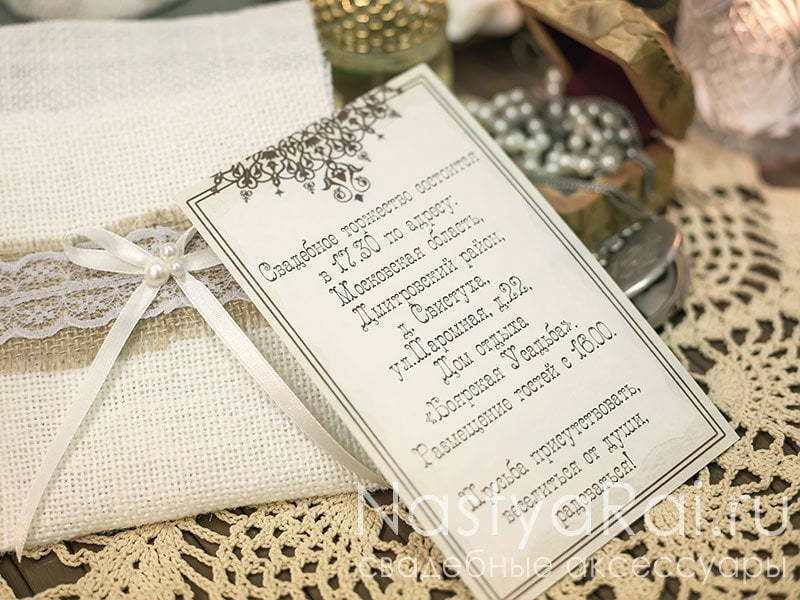 Свадебное торжество состоится
в 17.30 по адресу:
Московская область,
Дмитровский район,
д. Свистуха,
ул.Паромная, д.22,
Дом отдыха
«Боярская Усадьба».
Размещение гостей с 16.00.
Просьба присутствовать,
веселиться от души,
радоваться!
NastyaRai.ru
свадебные аксессуары